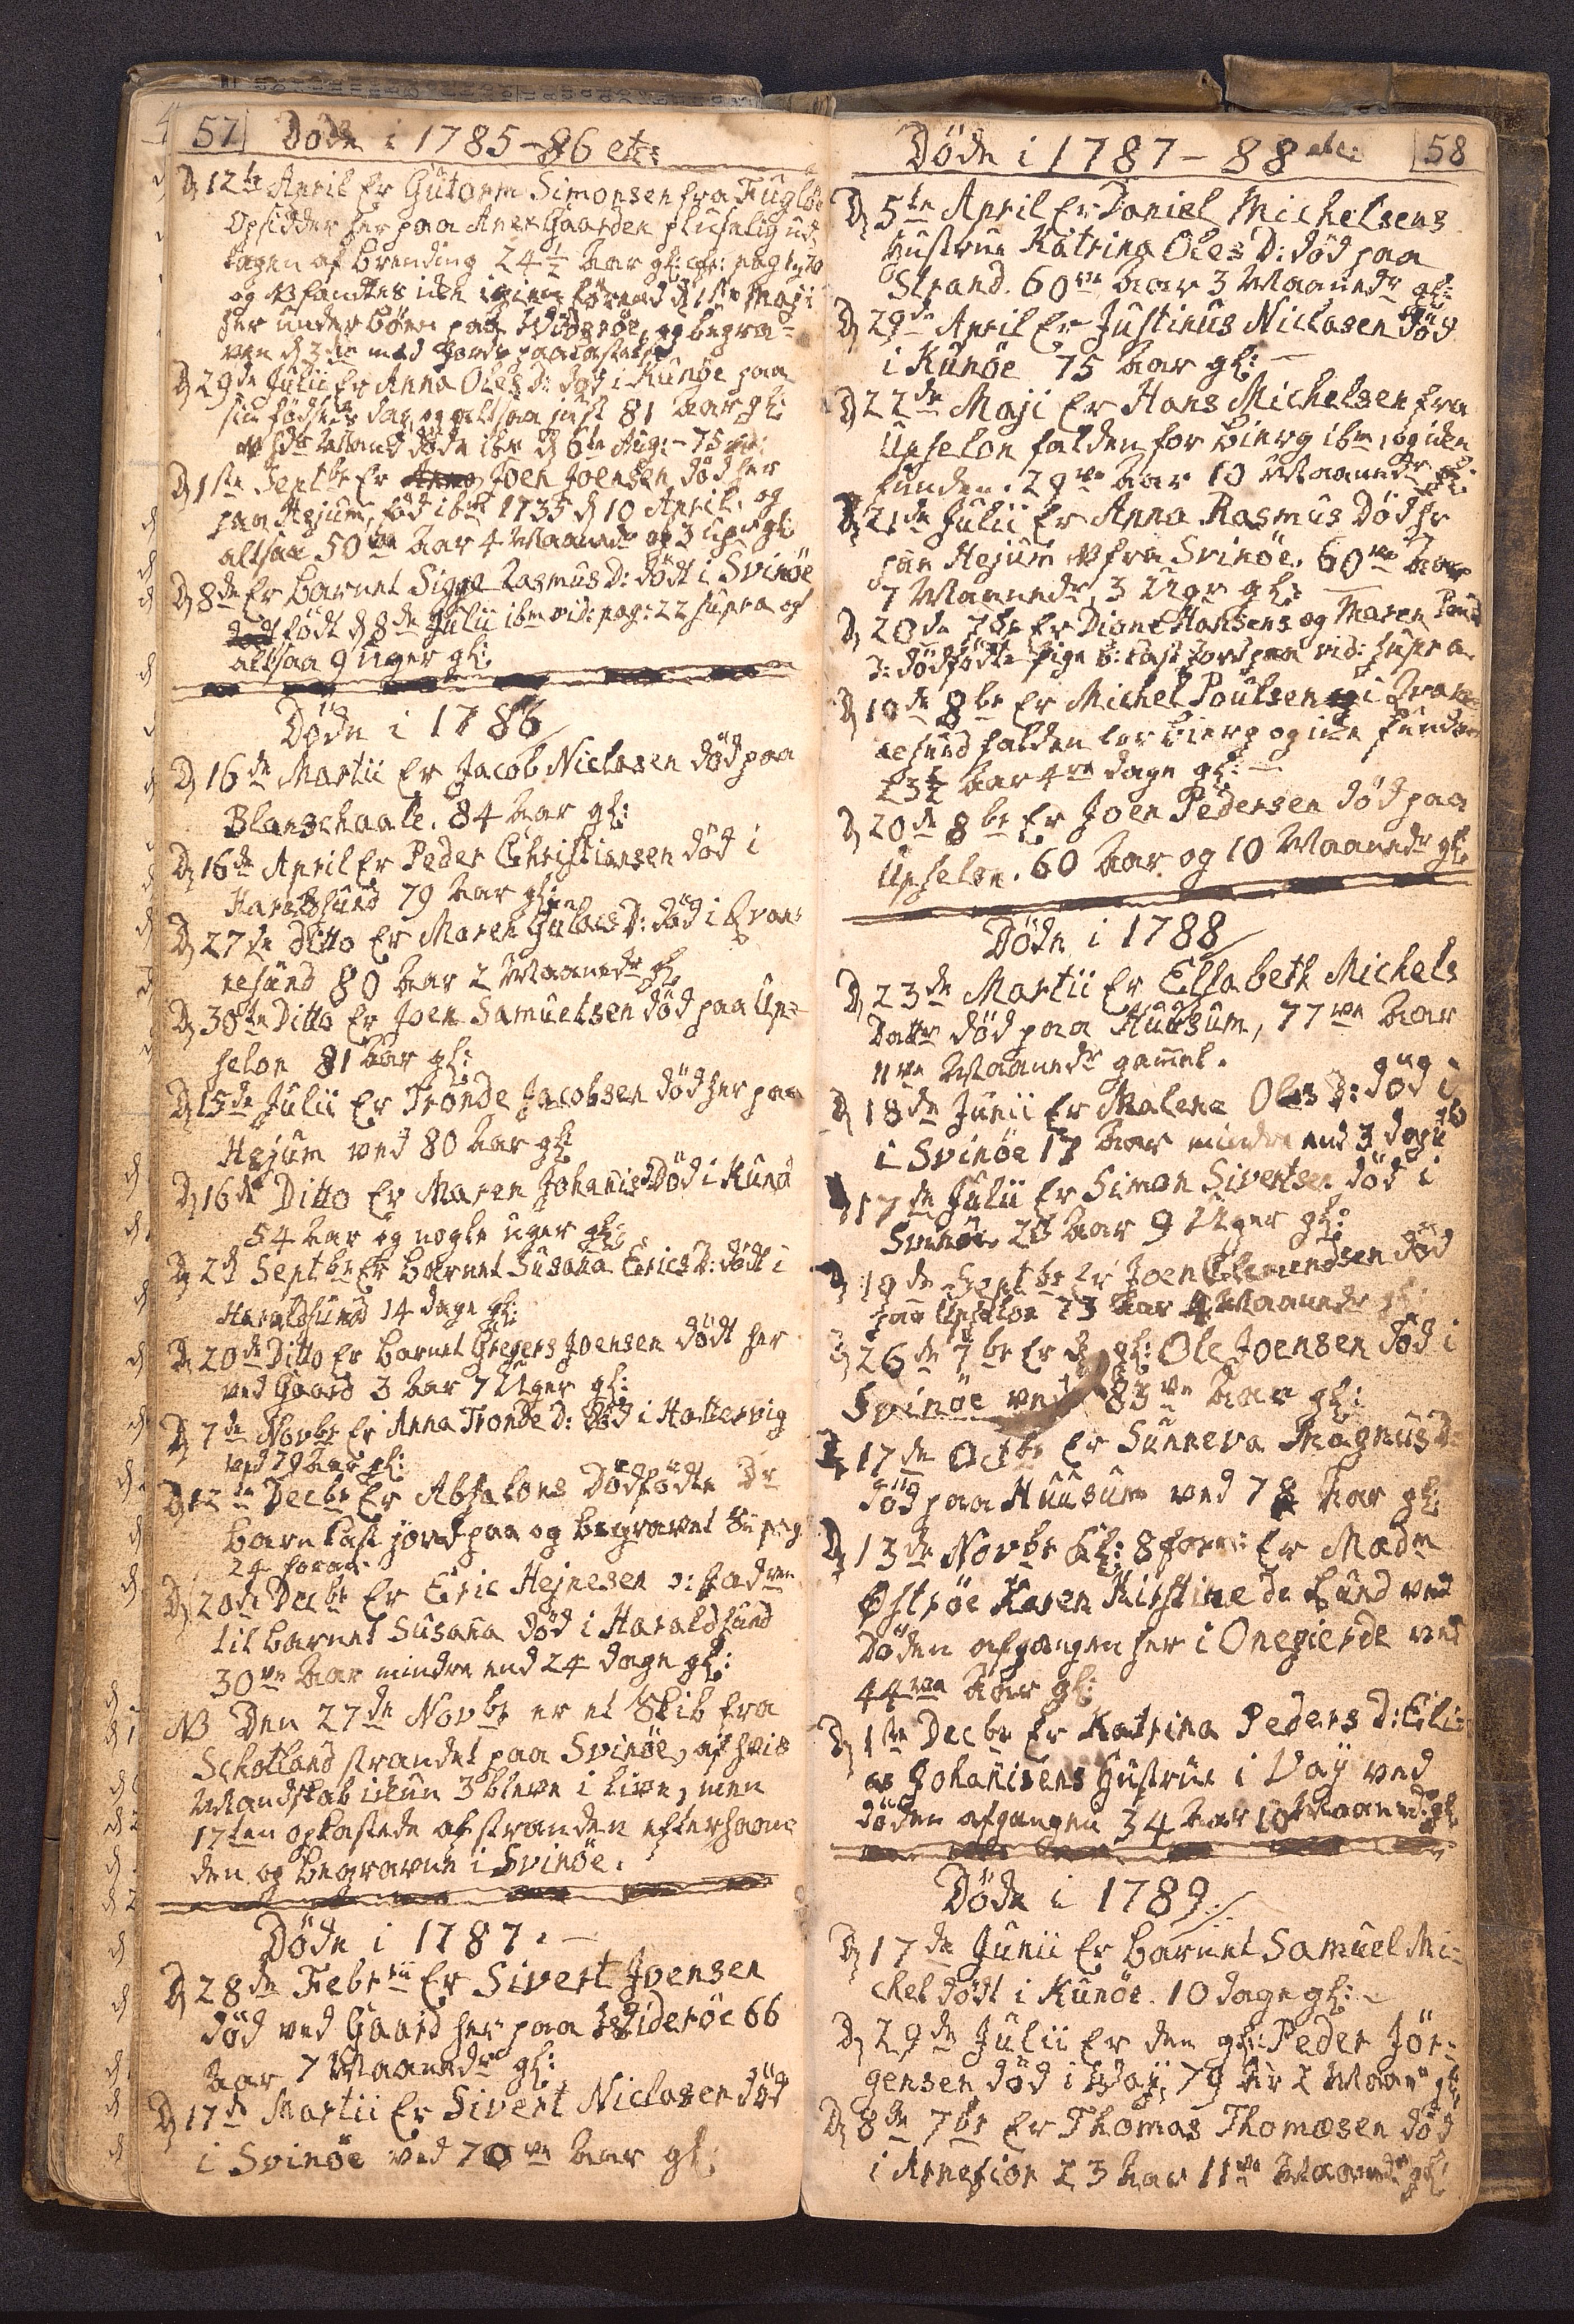 57 Døde i 1785-86 etc:
D 12te April Er Gutorm Simonsen fra Fugløe
Opsidder her paa Anex Gaarden pluselig ud
tagen af brending 24½ Aar gl:
og fandtes ikke igien førend d 1ste Maji
her under Bøen paa Widerøe, og begra-
ven d 3die med Jords paakastelse
D 29de Julii Er Anna Oles D: død i Kunöe paa
sin fødsels dag, og altsaa just 81 Aar gl:
Mand døde ibm d 6te Aug: - 75
D 1ste Septbr Er Joen Joensen død her
paa Hejum, fød ibm 1735 d 10 April. og
altsaa 50ve Aar 4 Maaneder og 3 uger gl:
D 8de Er barnet Sigge Rasmus D: dödt i Svinöe
födt d 8de Julii ibm vid: pag: 22 supra og
altsaa 9 Uger gl:
Døde i 1786
D 16de Martii Er Jacob Niclasen död paa
Blanschaale. 84 Aar gl:
D 16de April Er Peder Christiansen död i
Haraldsund 79 Aar gl:
D 27de Ditto Er Maren Gulaks D: död i Qvan-
nesund 80 Aar 2 Maaneder gl:
D 30te Ditto Er Joen Samuelsen död paa Up-
selon 81 Aar gl:
D 15de Julii Er Trönde Jacobsen död her paa
Hejum ved 80 Aar gl:
D 16de Ditto Er Maren Johanis D: Död i Kunö
54 Aar og nogle uger gl:
D 2d Septbr Er barnet Susana Erics D: dödt i
Haraldsund 14 dage gl:
D 20de Ditto Er barnet Gregers Joensen dödt her
ved Gaard 3 Aar 7 Uger gl:
D 7de Novbr Er Anna Tronde D: Död i Hattervig
ved 79 Aar gl:
Decbr Er Absalons Dödfödte Dr
barn kast jord paa og begravet
24 foran.
D 20de Decbr Er Eric Hejnesen o: Faderen
til barnet Susana död i Haraldsund
30ve Aar mindre end 24 dage gl:
NB Den 27de Novbr er et Skib fra
Schotland strandet paa Svinöe, af hvis
Mandskab ikun 3 bleve i live, men
17ten opkastede af stranden efterhaan-
den og begravne i Svinöe.
Döde i 1787. -
D 28de Febrii Er Sivert Joensen
död ved Gaard her paa Widerøe 66
Aar 7 Maaneder gl:
D 17de Martii Er Sivert Niclasen död
i Svinöe ved 70ve Aar gl:
Döde i 1787 - 88 etc: 58
D 5te April Er Daniel Michelsens
Hustrue Katrina Oles D: död paa
Strand. 60ve Aar 3 Maaneder gl:
D 29de April Er Justinus Niclasen död
i Kunöe 75 Aar gl: -
D 22de Maji Er Hans Michelsen fra
Upselon falden for bierg ibm, og iken
funden. 29ve Aar 10 Maaneder gl:
D 21de Julii Er Anna Rasmus Död her
paa Hejum fra Svinöe. 60ve Aar
7 Maaneder, 3 Uger gl:
D 20de 7br Er Dione Hansens og Maren Pouls
D: dödfödte pige b: kast Jord paa vid: supra.
D 10de 8br Er Michel Poulsen i Qvan-
nesund falden for bierg og iken funden
23½ Aar 4re dage gl: -
D 20de 8br Er Joen Pedersen död paa
Upselon. 60 Aar og 10 Maaneder gl:
Döde i 1788
D 23de Martii Er Ellsabeth Michels
Datter död paa Huusum, 77ve Aar
11ve Maaneder gammel.
D 18de Junii Er Malene Oles D: död
i Svinöe 17 Aar mindre end 3 dage
D 17de Julii Er Simon Sivertsen död i
Svinöe 20 Aar 9 Uger gl:
D 10de Septbr Er Joen Clemendsen död
paa Upselon 73 Aar 4 Maaneder gl:
D 26de 7br Er d gl: Ole Joensen död i
Svinöe ved 83ve Aar gl:
D 17de Octbr Er Sunneva Magnus D:
död paa Huusum ved 78 Aar gl:
D 13de Novbr Kl: 8 form: Er Madm
Øströe Karen Kirstine de Lund ved
döden afgangen her i Onegierde ved
44ve Aar gl:
D 1ste Decbr Er Katrina Peders D: Eli-
as Johanisens Hustrue i Vaÿ ved
döden afgangen 34 Aar 10 Maaneder gl:
Döde i 1789
D 17de Junii Er barnet Samuel Mi-
chel dödt i Kunöe. 10 dage gl: -
D 29de Julii Er den gl: Peder Jör-
gensen död i Waÿ, 79 Aar 2 Maaneder gl:
D 8de 7br Er Thomas Thomæsen död
i Arnefior 23 Aar 11ve Maaneder gl: